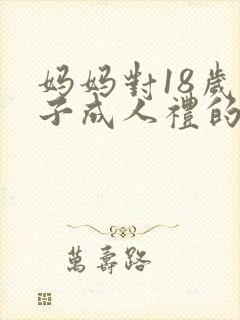 妈妈對18歲
子成人禮的
萬壽路